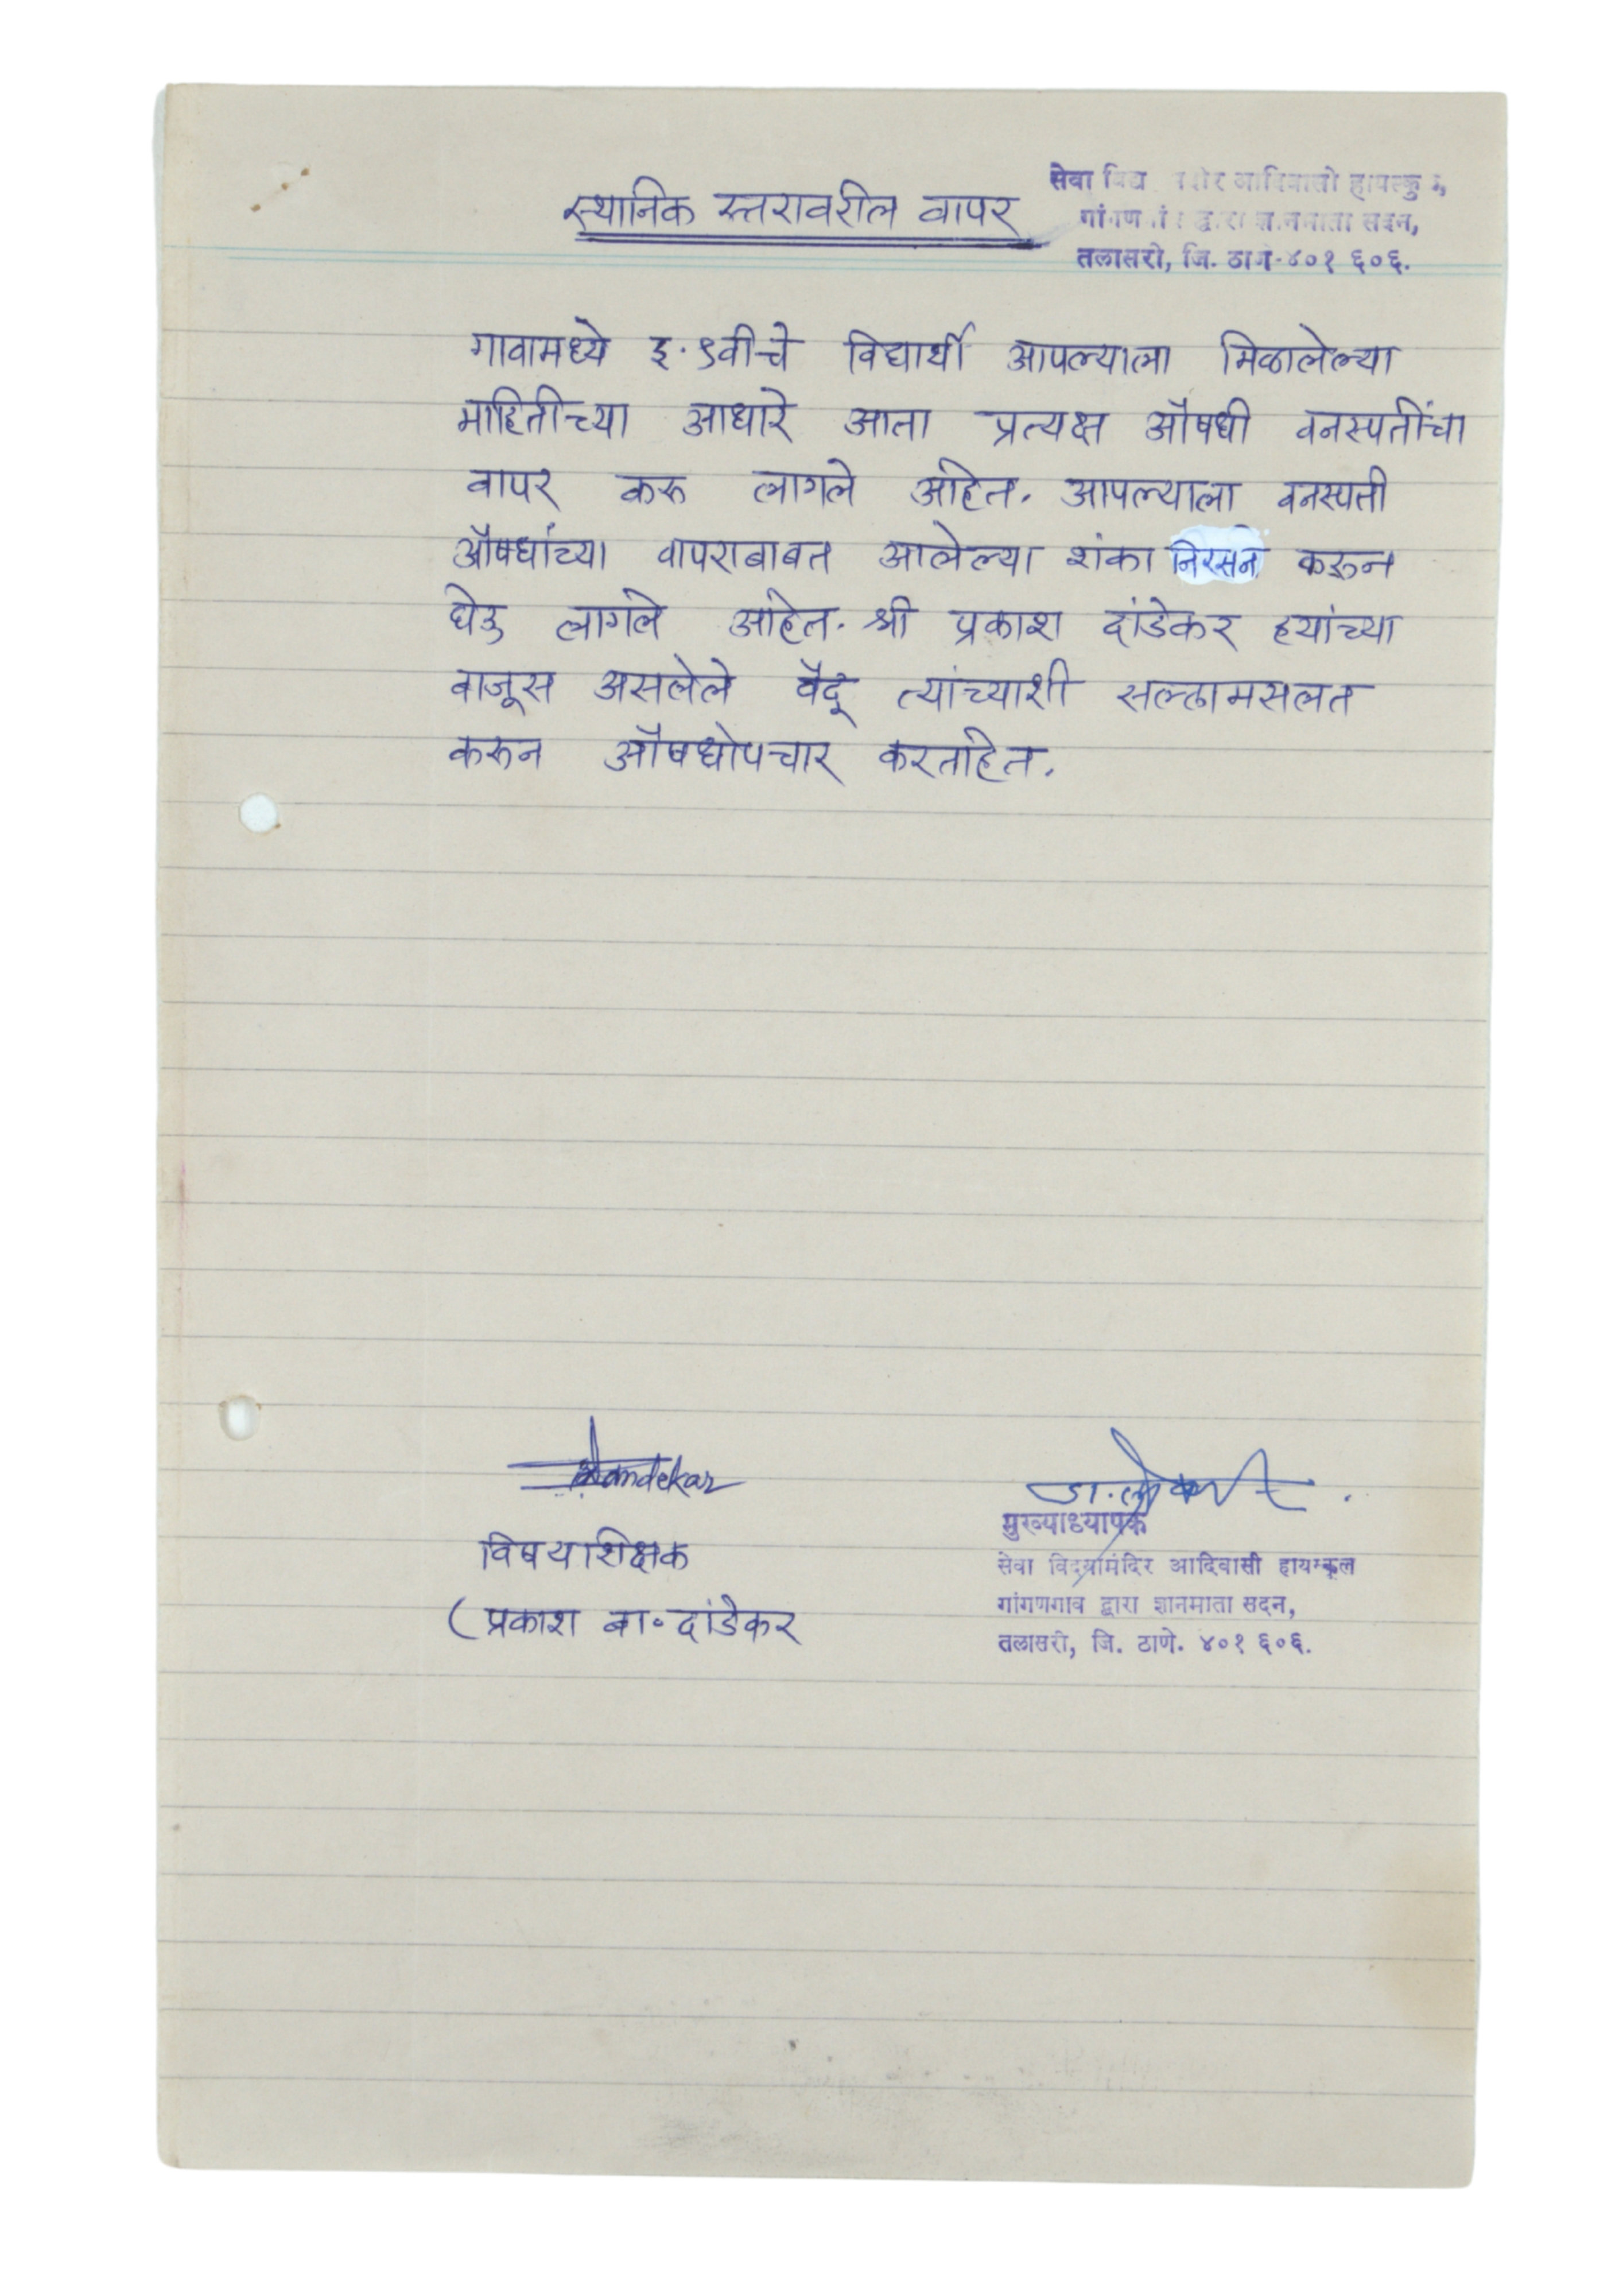 स्थानिक स्तरावरील वापर
सेवा विद्या आदिवासी हायस्कुल,
गांगणगांव द्वारा ज्ञानमाता सदन,
तलासरी, जि. ठाणे-४०१ ६०६.
गावामध्ये इ. ९वीचे विद्यार्थी आपल्याला मिळालेल्या
माहितीच्या आधारे आता प्रत्यक्ष औषधी वनस्पतींचा
वापर करू लागले आहेत. आपल्याला वनस्पती
औषधांच्या वापराबाबत आलेल्या शंका निरसन करून
घेउ लागले आहेत. श्री प्रकाश दांडेकर हयांच्या
बाजूस असलेले वैदू त्यांच्याशी सल्लामसलत
करून औषधोपचार करताहेत.
Dandekar
विषयशिक्षक
(प्रकाश बा. दांडेकर
मुख्याध्यापक
सेवा विद्यामंदिर आदिवासी हायस्कूल
गांगणगाव द्वारा ज्ञानमाता सदन,
तलासरी, जि. ठाणे. ४०१ ६०६.